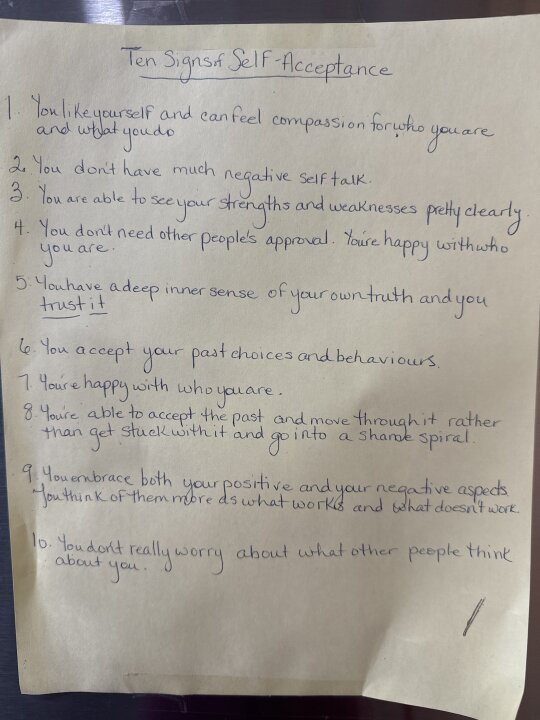 Ten Signs of Self-Acceptance
1. You like yourself and can feel compassion for who you are
and what you do
2. You don't have much negative self talk.
3. You are able to see your strengths and weaknesses pretty clearly.
4. You don't need other people's approval. You're happy with who
you are.
5. You have a deep inner sense of your own truth and you
trust it
6. You accept your past choices and behaviours.
7. You're happy with who you are.
8. You're able to accept the past and move through it rather
than get stuck with it and go into a shame spiral.
9. You embrace both your positive and your negative aspects.
You think of them more as what works and what doesn't work.
10. You don't really worry about what other people think
about you.